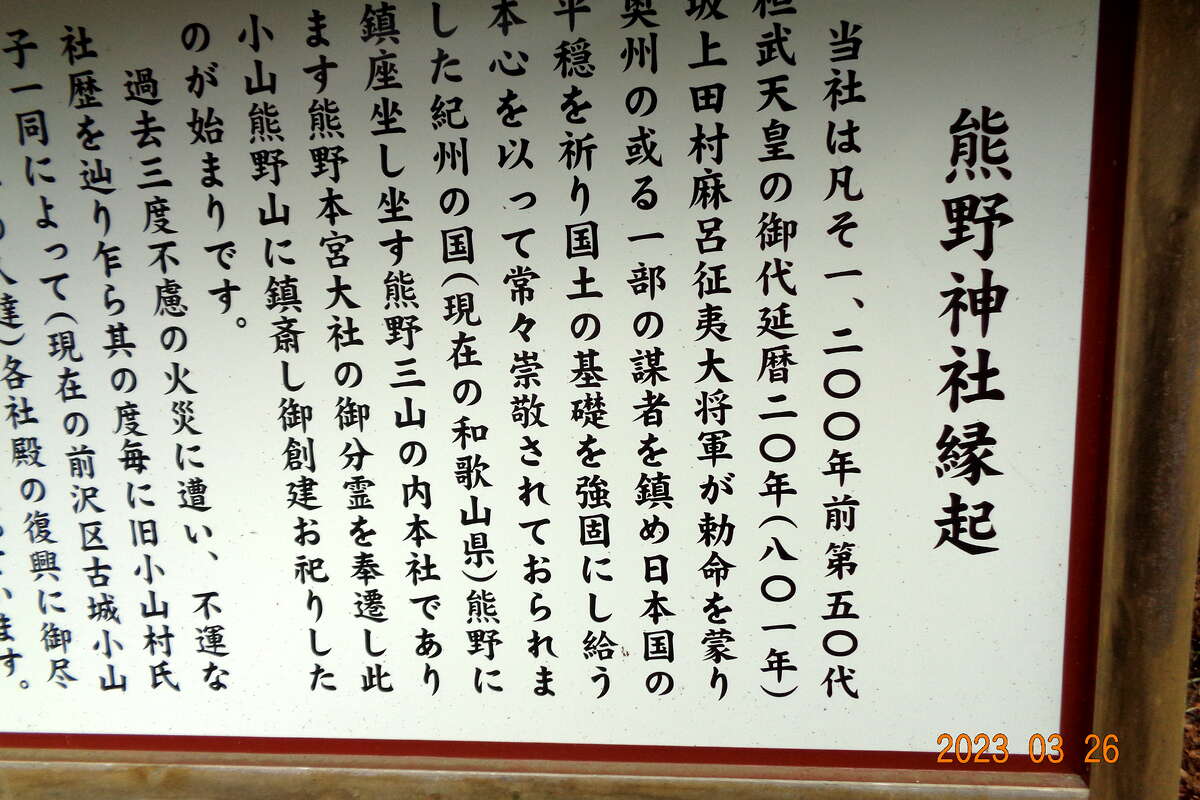 熊野神社縁起
当社は凡そ一、二〇〇年前第五〇代
桓武天皇の御代延暦二〇年(八〇一年)
坂上田村麻呂征夷大将軍が勅命を蒙り
奥州の或る一部の謀者を鎮め日本国の
平穏を祈り国土の基礎を強固にし給う
本心を以って常々崇敬されておられま
した紀州の国(現在の和歌山県)熊野に
鎮座坐し坐す熊野三山の内本社であり
ます熊野本宮大社の御分霊を奉遷し此
小山熊野山に鎮斎し御創建お祀りした
のが始まりです。
過去三度不慮の火災に遭い、不運な
社歴を辿り乍ら其の度毎に旧小山村氏
子一同によって(現在の前沢区古城小山
達)各社殿の復興に御尽
います。
2023 03 26